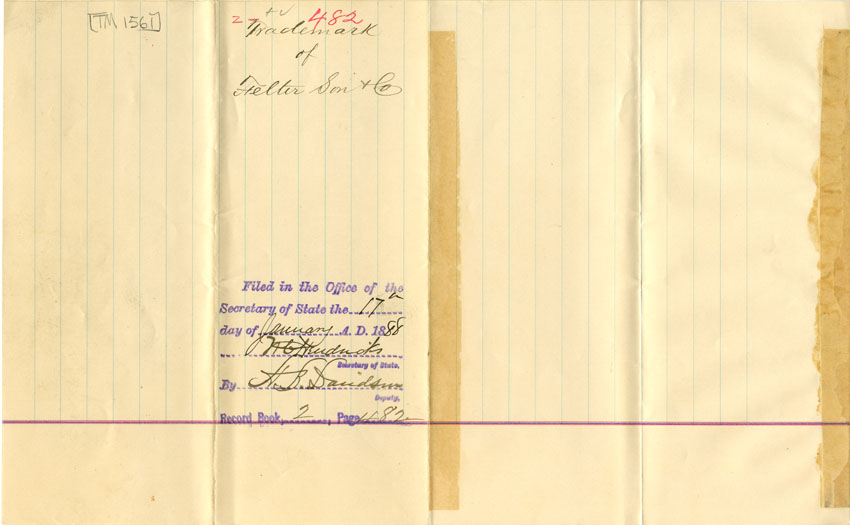 [TM 1561]
2 - 482
Trademark
of
Felter Son & Co
Filed in the Office of the
Secretary of State the 17th
day of January A. D. 1888
W C Hendricks
Secretary of State.
By A. B. Davidson
Deputy,
Record Book, 2, Page 482